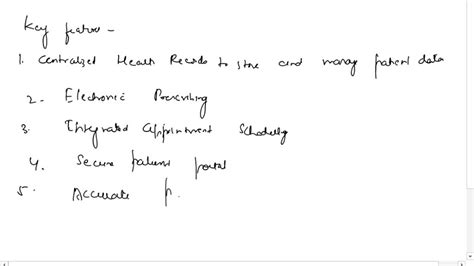 Key features -
1. Centralized Health Records to store and manag patient data
2. Electronic Prescribing
3. Integrated appointment Scheduling
4. Secure patient portal
5. Accurate p